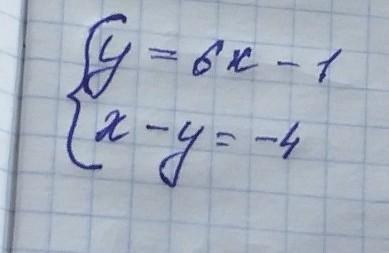 y = 6x - 1
x - y = -4